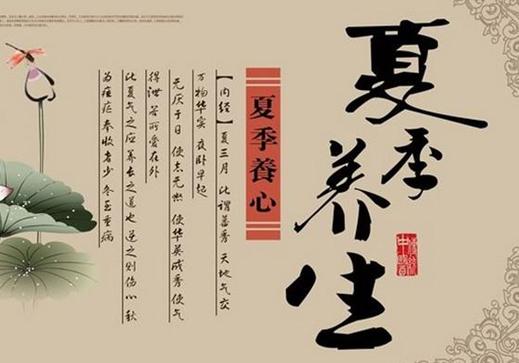 夏季养生
夏季養心
【内经】夏三月 此谓蕃秀 天地气交
万物华实 夜卧早起
无厌于日 使志无怒 使华英成秀 使气
得泄 若所爱在外
此夏气之应养长之道也 逆之则伤心 秋
为痎疟 奉收者少 冬至重病